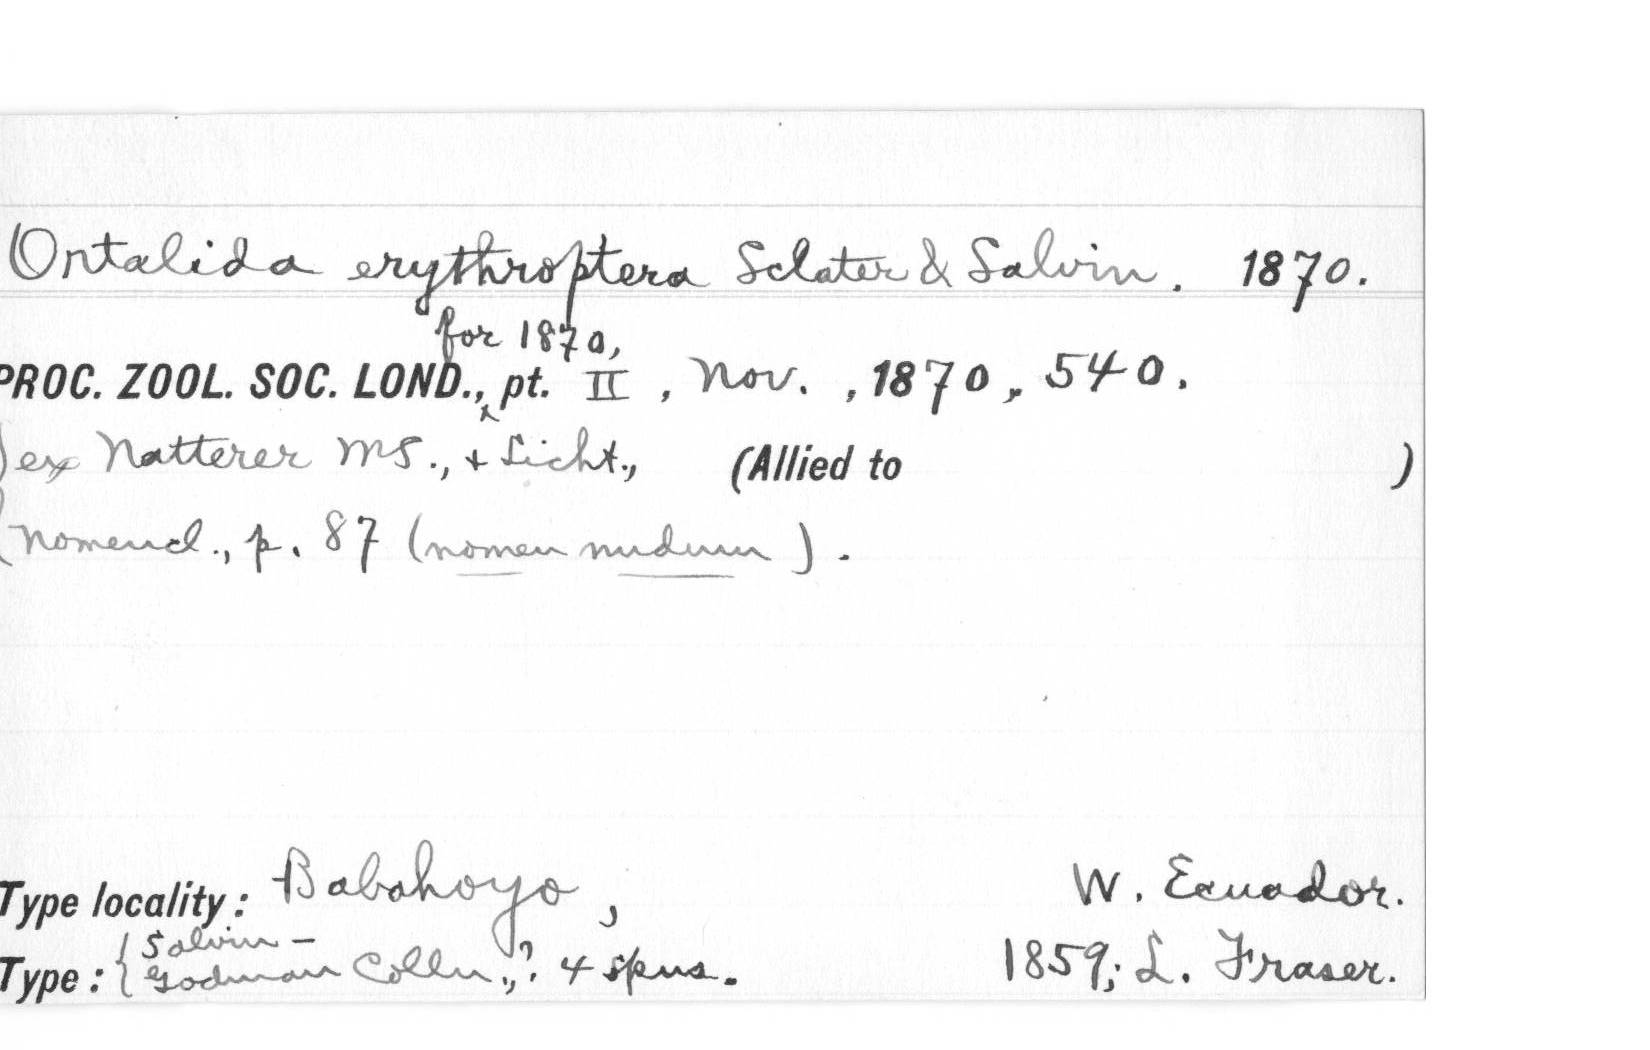 Ortalida erythroptera Sclater & Salvin. 1870.
for 1870,
PROC. ZOOL. SOC. LOND., pt. II, Nov., 1870, 540.
ex Natterer MS., + Licht., (Allied to )
Nomencl., p. 87 (nomen nudum).
Type locality: Babahoyo, W. Ecuador.
Salvin-
Type: Godman Colln., ? 4 spns. 1859; L. Fraser.